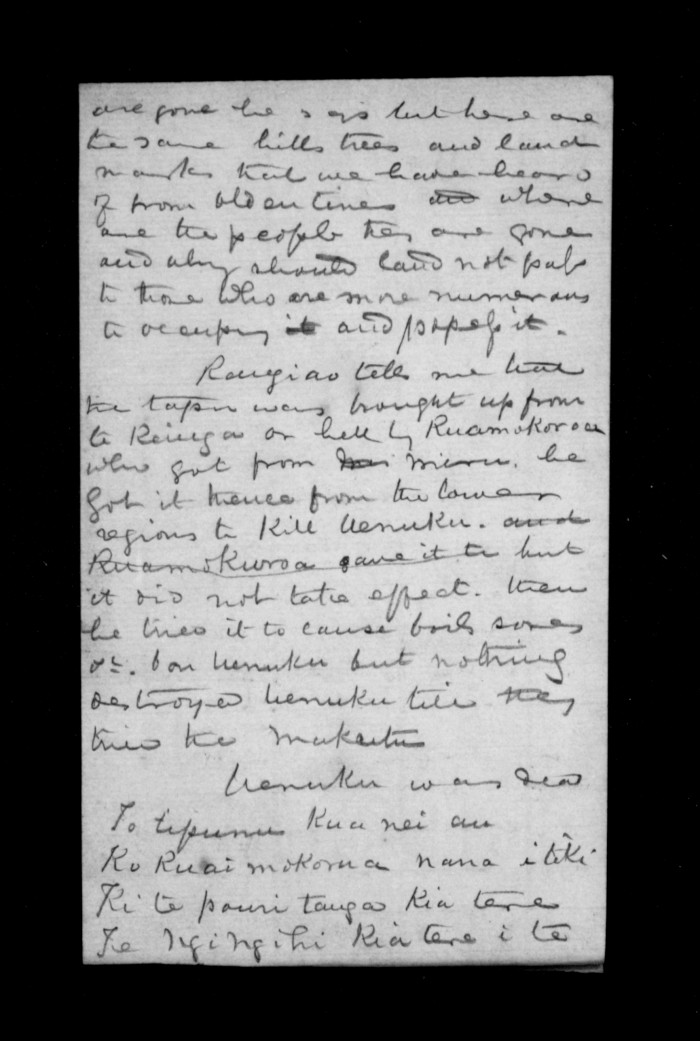 are gone he says but here are
the same hills trees and land
marks that we have heard
of from olden times and where
are the people they are gone
and why should land not pass
to those who are more numerous
to occupy it and possess it.
Rangiao tells me that
the tapu was brought up from
te Reinga or hell by Ruamokoroa
who got from Miru. he
got it thence from the lower
regions to kill Uenuku. and
Ruamokuroa gave it to but
it did not take effect. then
he tried it to cause boils sores
&c. on Uenuku but nothing
destroyed Uenuku till they
tried the Makutu
Uenuku was dead
To tipunu Kua nei au
Ko Ruaimokorua nana i tiki
Ki te pouri tanga Kia tere
Te Ngingihi Kia tere i te